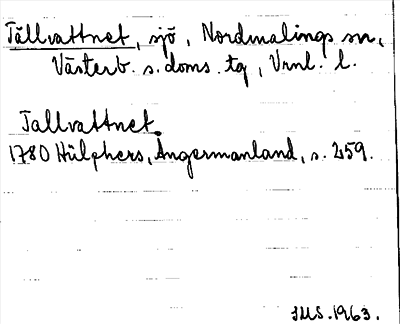 Tällvattnet, sjö, Nordmalings sn,
Västerb. s. doms. tg, Vrnl. l.
Tallvattnet.
1780 Hülphers, Ångermanland, s. 259.
JMS. 1963.